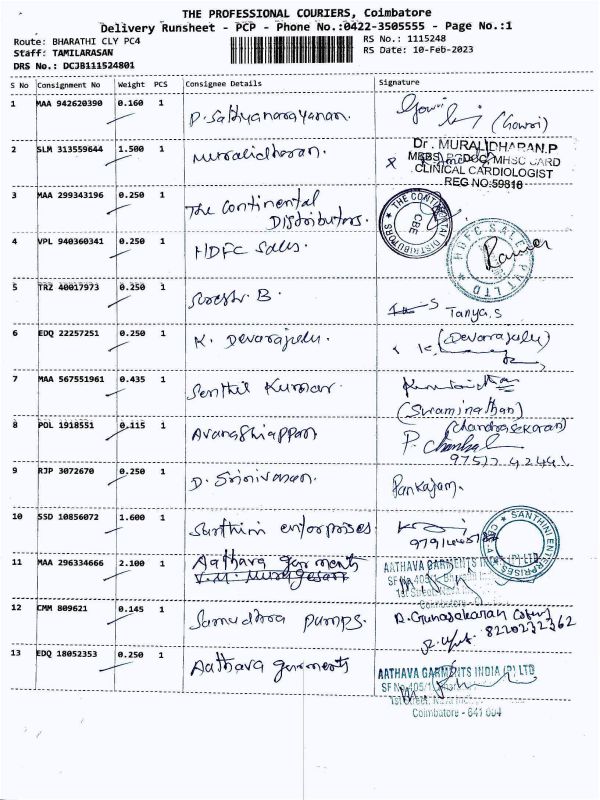 THE PROFESSIONAL COURIERS, Coimbatore
Delivery Runsheet - PCP - Phone No.:0422-3505555 - Page No.:1
Route: BHARATHI CLY PC4
RS No.: 1115248
Staff: TAMILARASAN
RS Date: 10-Feb-2023
DRS No.: DCJB111524801
S No Consignment No Weight PCS Consignee Details Signature
1 MAA 942620390 0.160 1 P. Sathyanarayanan. (Gowri)
2 SLM 313559644 1.500 1 Muralidharan.
Dr. MURALIDHARAN.P
CLINICAL CARDIOLOGIST
REG NO:59816
3 MAA 299343196 0.250 1 The Continental
Distributors.
THE CONTINENTAL DISTRIBUTORS
CBE
4 VPL 940360341 0.250 1 HDFC Sales.
HDFC SALES PVT LTD
5 TRZ 40017973 0.250 1 B. Tanya.S
6 EDQ 22257251 0.250 1 K. Devarajulu. (Devarajulu)
7 MAA 567551961 0.435 1 Senthil Kumar.
(Swaminathan)
8 POL 1918551 0.115 1 Avanashiappan (Chandrasekaran)
9 RJP 3072670 0.250 1 D. Srinivasan. Pankajam.
10 SSD 10856072 1.600 1 Santhini enterprises.
SANTHINI ENTERPRISES
11 MAA 296334666 2.100 1 Aathava garments
V.M. Murugesan
AATHAVA GARMENTS INDIA (P) LTD
12 CMM 809621 0.145 1 Samudhra Pumps.
8220232362
13 EDQ 18052353 0.250 1 Aathava garments
AATHAVA GARMENTS INDIA (P) LTD
Coimbatore - 641 004